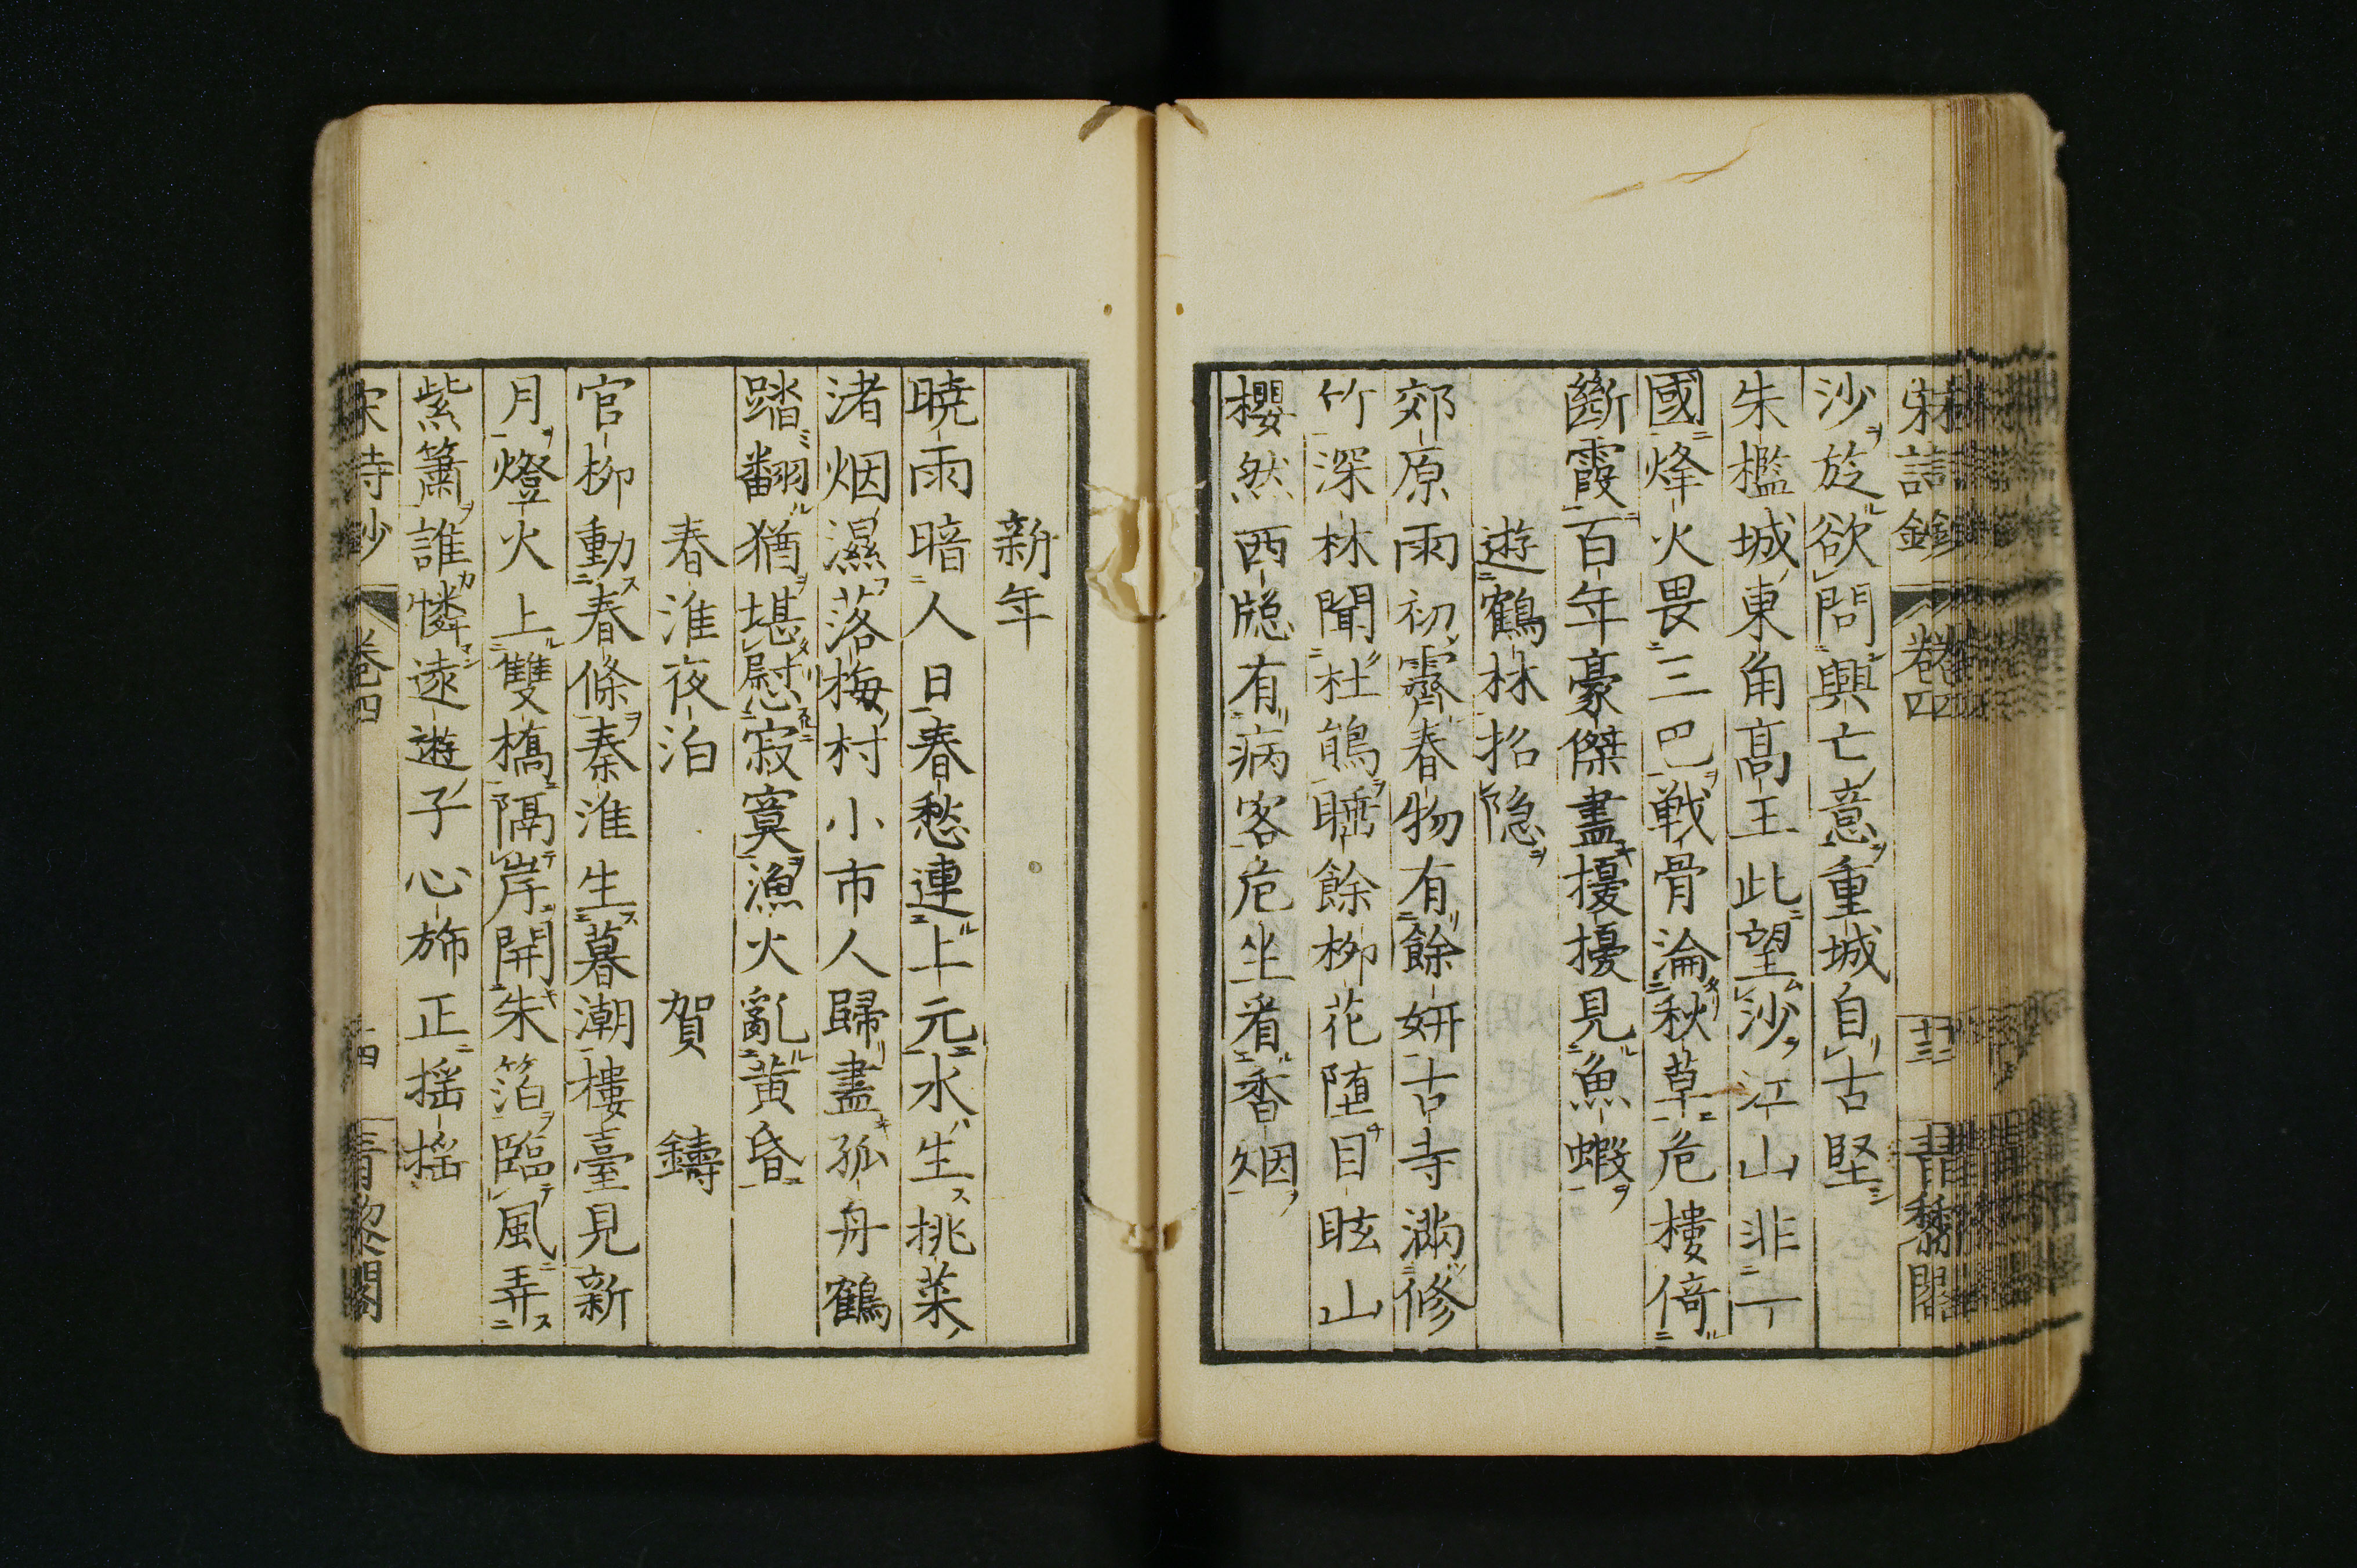 沙於欲問興亡意重城自古堅
朱檻城東角高王此望沙江山非一
國烽火畏三巴戰骨淪秋草危樓倚
斷霞百年豪傑盡擾擾見魚蝦
遊鶴林招隠
郊原雨初霽春物有餘妍古寺滿修
竹深林聞杜鵑睡餘柳花堕目眩山
櫻然西牕有病客危坐看香烟
新年
曉雨暗人日春愁連上元水生挑菜
渚烟濕落梅村小市人歸盡孤舟鶴
踏翻猶堪慰寂寞漁火亂黄昏
春淮夜泊 賀鑄
官柳動春條秦淮生暮潮樓臺見新
月燈火上雙橋隔岸開朱箔臨風弄
紫簫誰憐遠遊子心斾正揺揺
宋詩鈔 卷四 十四 青黎閣